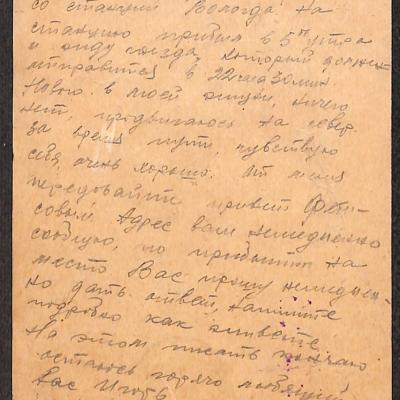 со станции Вологда. На
станцию прибыл в 5 утра
и жду поезда, который должен
отправится в 22 часа 30 мин
Нового в моей жизни, ничего
нет, продвигаюсь на север.
за время пути, чувствую
себя очень хорошо. От меня
передовайте привет
совым. Адрес вам немедленно
сообщу, по прибытии на
место Вас прошу немедлен-
но дать ответ, напишите
подробно как живете
На этом писать кончаю
остаюсь горячо любящий
Вас Игорь